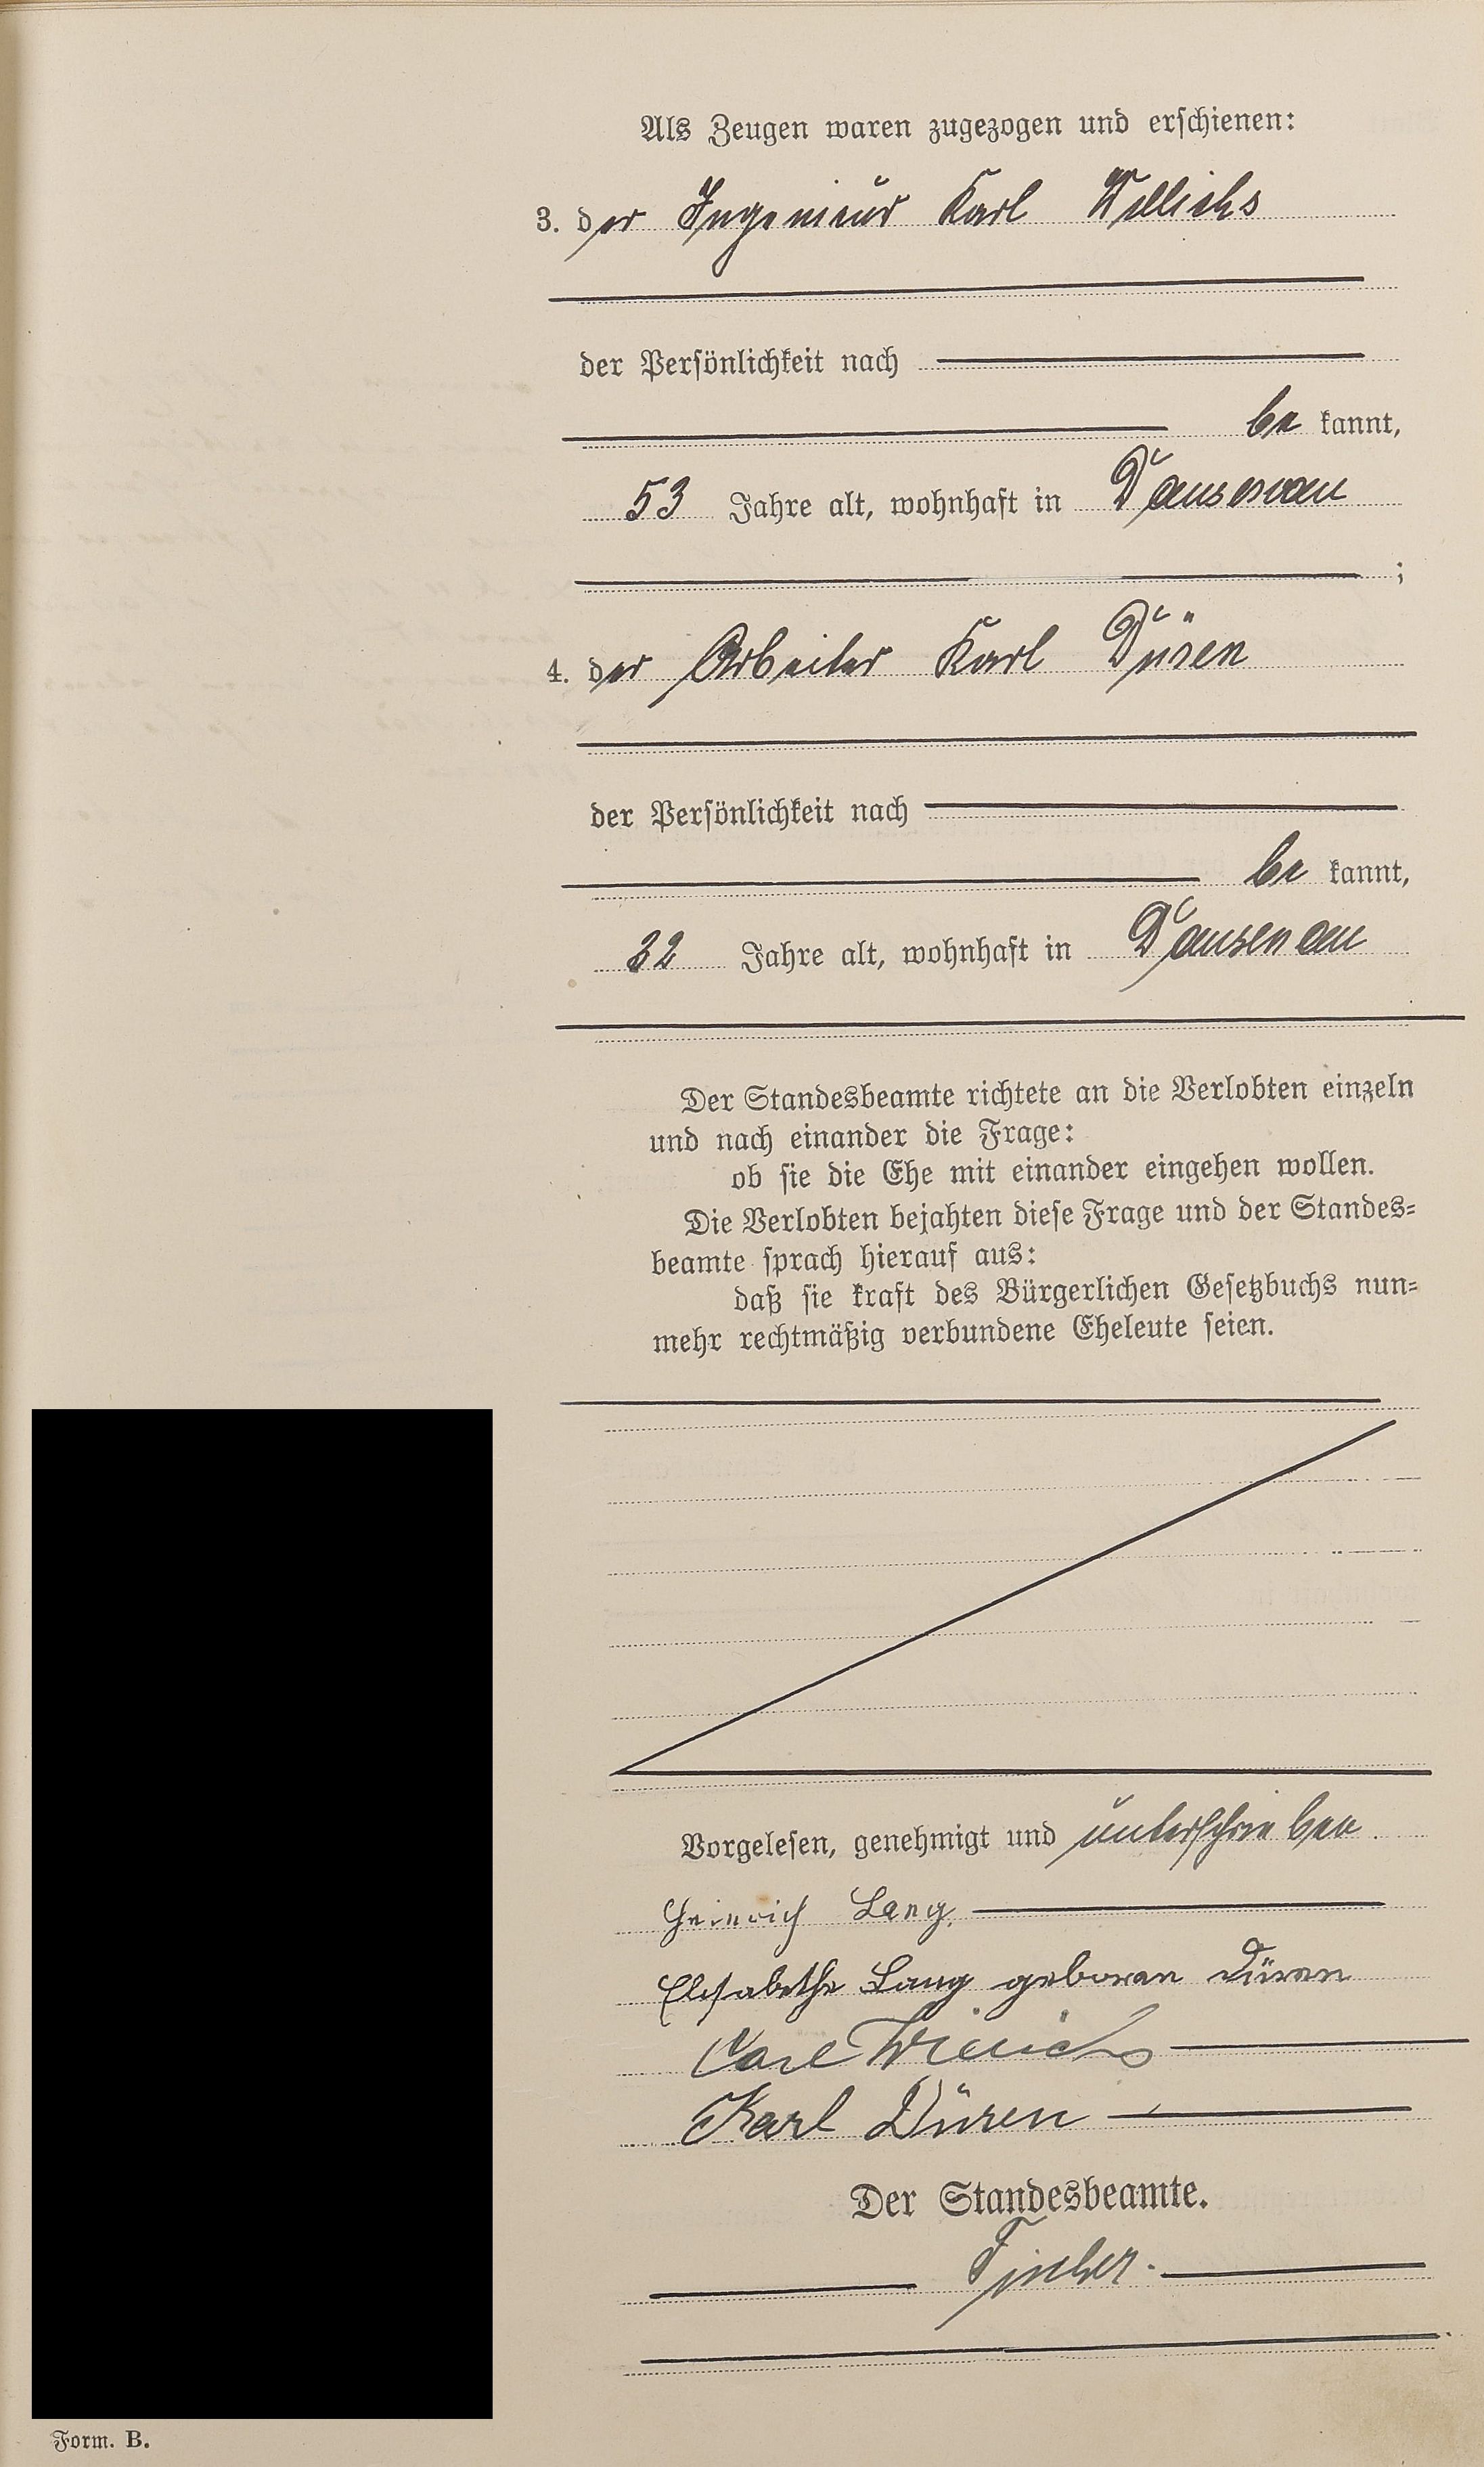 Als Zeugen waren zugezogen und erschienen:
3. der Ingenieur Karl Willichs
der Persönlichkeit nach
be kannt,
53 Jahre alt, wohnhaft in Dausenau
;
4. der Arbeiter Karl Düren
der Persönlichkeit nach
be kannt,
32 Jahre alt, wohnhaft in Dausenau
Der Standesbeamte richtete an die Verlobten einzeln
und nach einander die Frage:
ob sie die Ehe mit einander eingehen wollen.
Die Verlobten bejahten diese Frage und der Standes-
beamte sprach hierauf aus:
daß sie kraft des Bürgerlichen Gesetzbuchs nun-
mehr rechtmäßig verbundene Eheleute seien.
Vorgelesen, genehmigt und unterschrieben
Heinrich Lang.
Elisabethe Lang geboren Düren
Carl Willichs
Karl Düren
Der Standesbeamte.
Fischer.
Form. B.